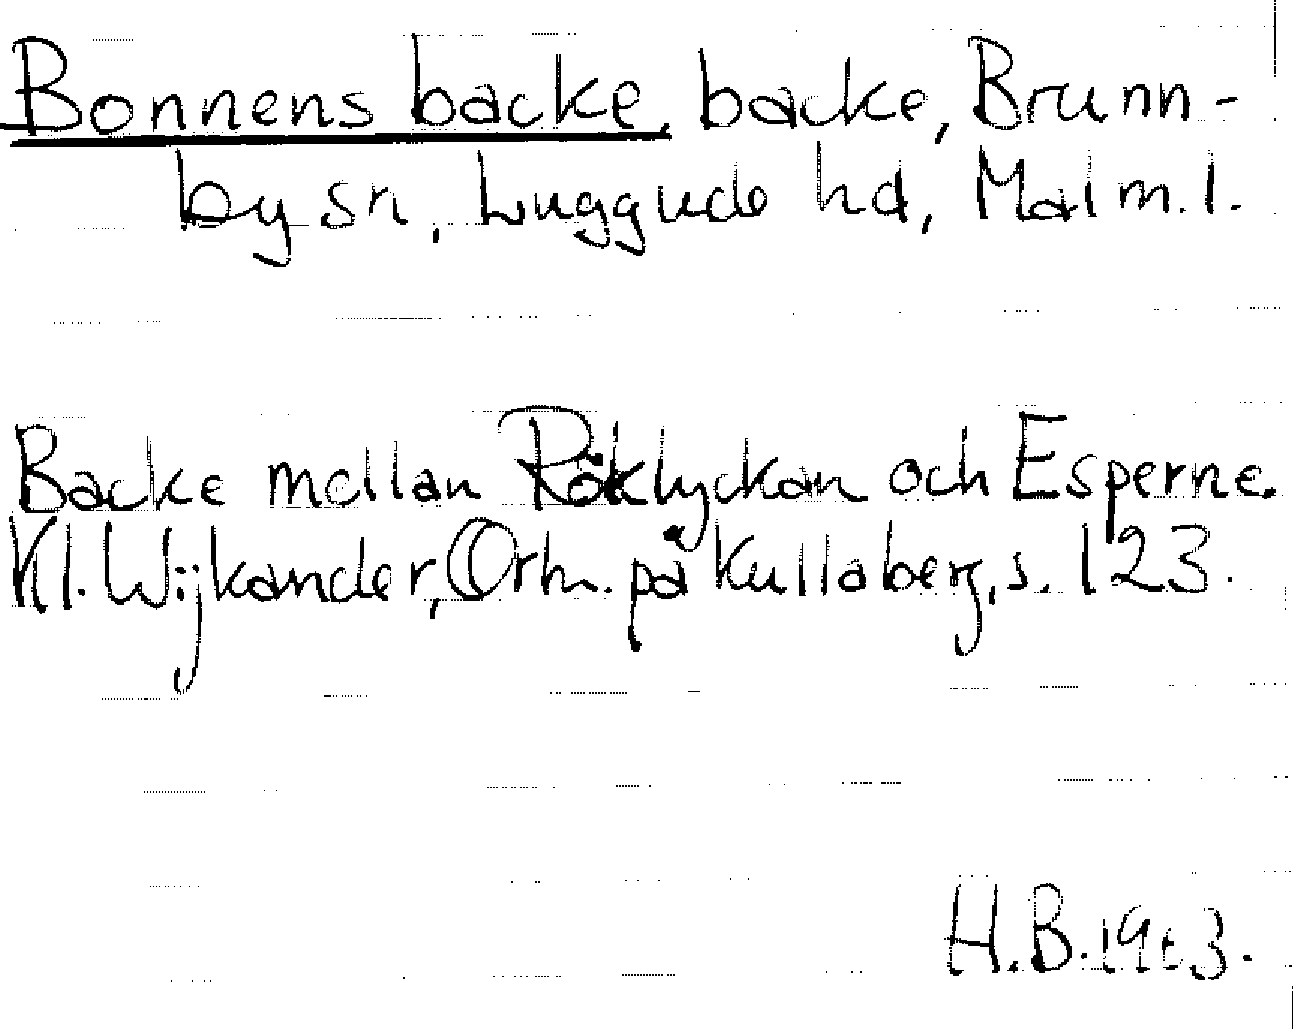 Bonnens backe, backe, Brunn-
by sn, Luggude hd, Malm. l.
Backe mellan Röklyckan och Esperne.
Kl. Wijkander, Ortn. på Kullaberg, s. 123.
H.B.